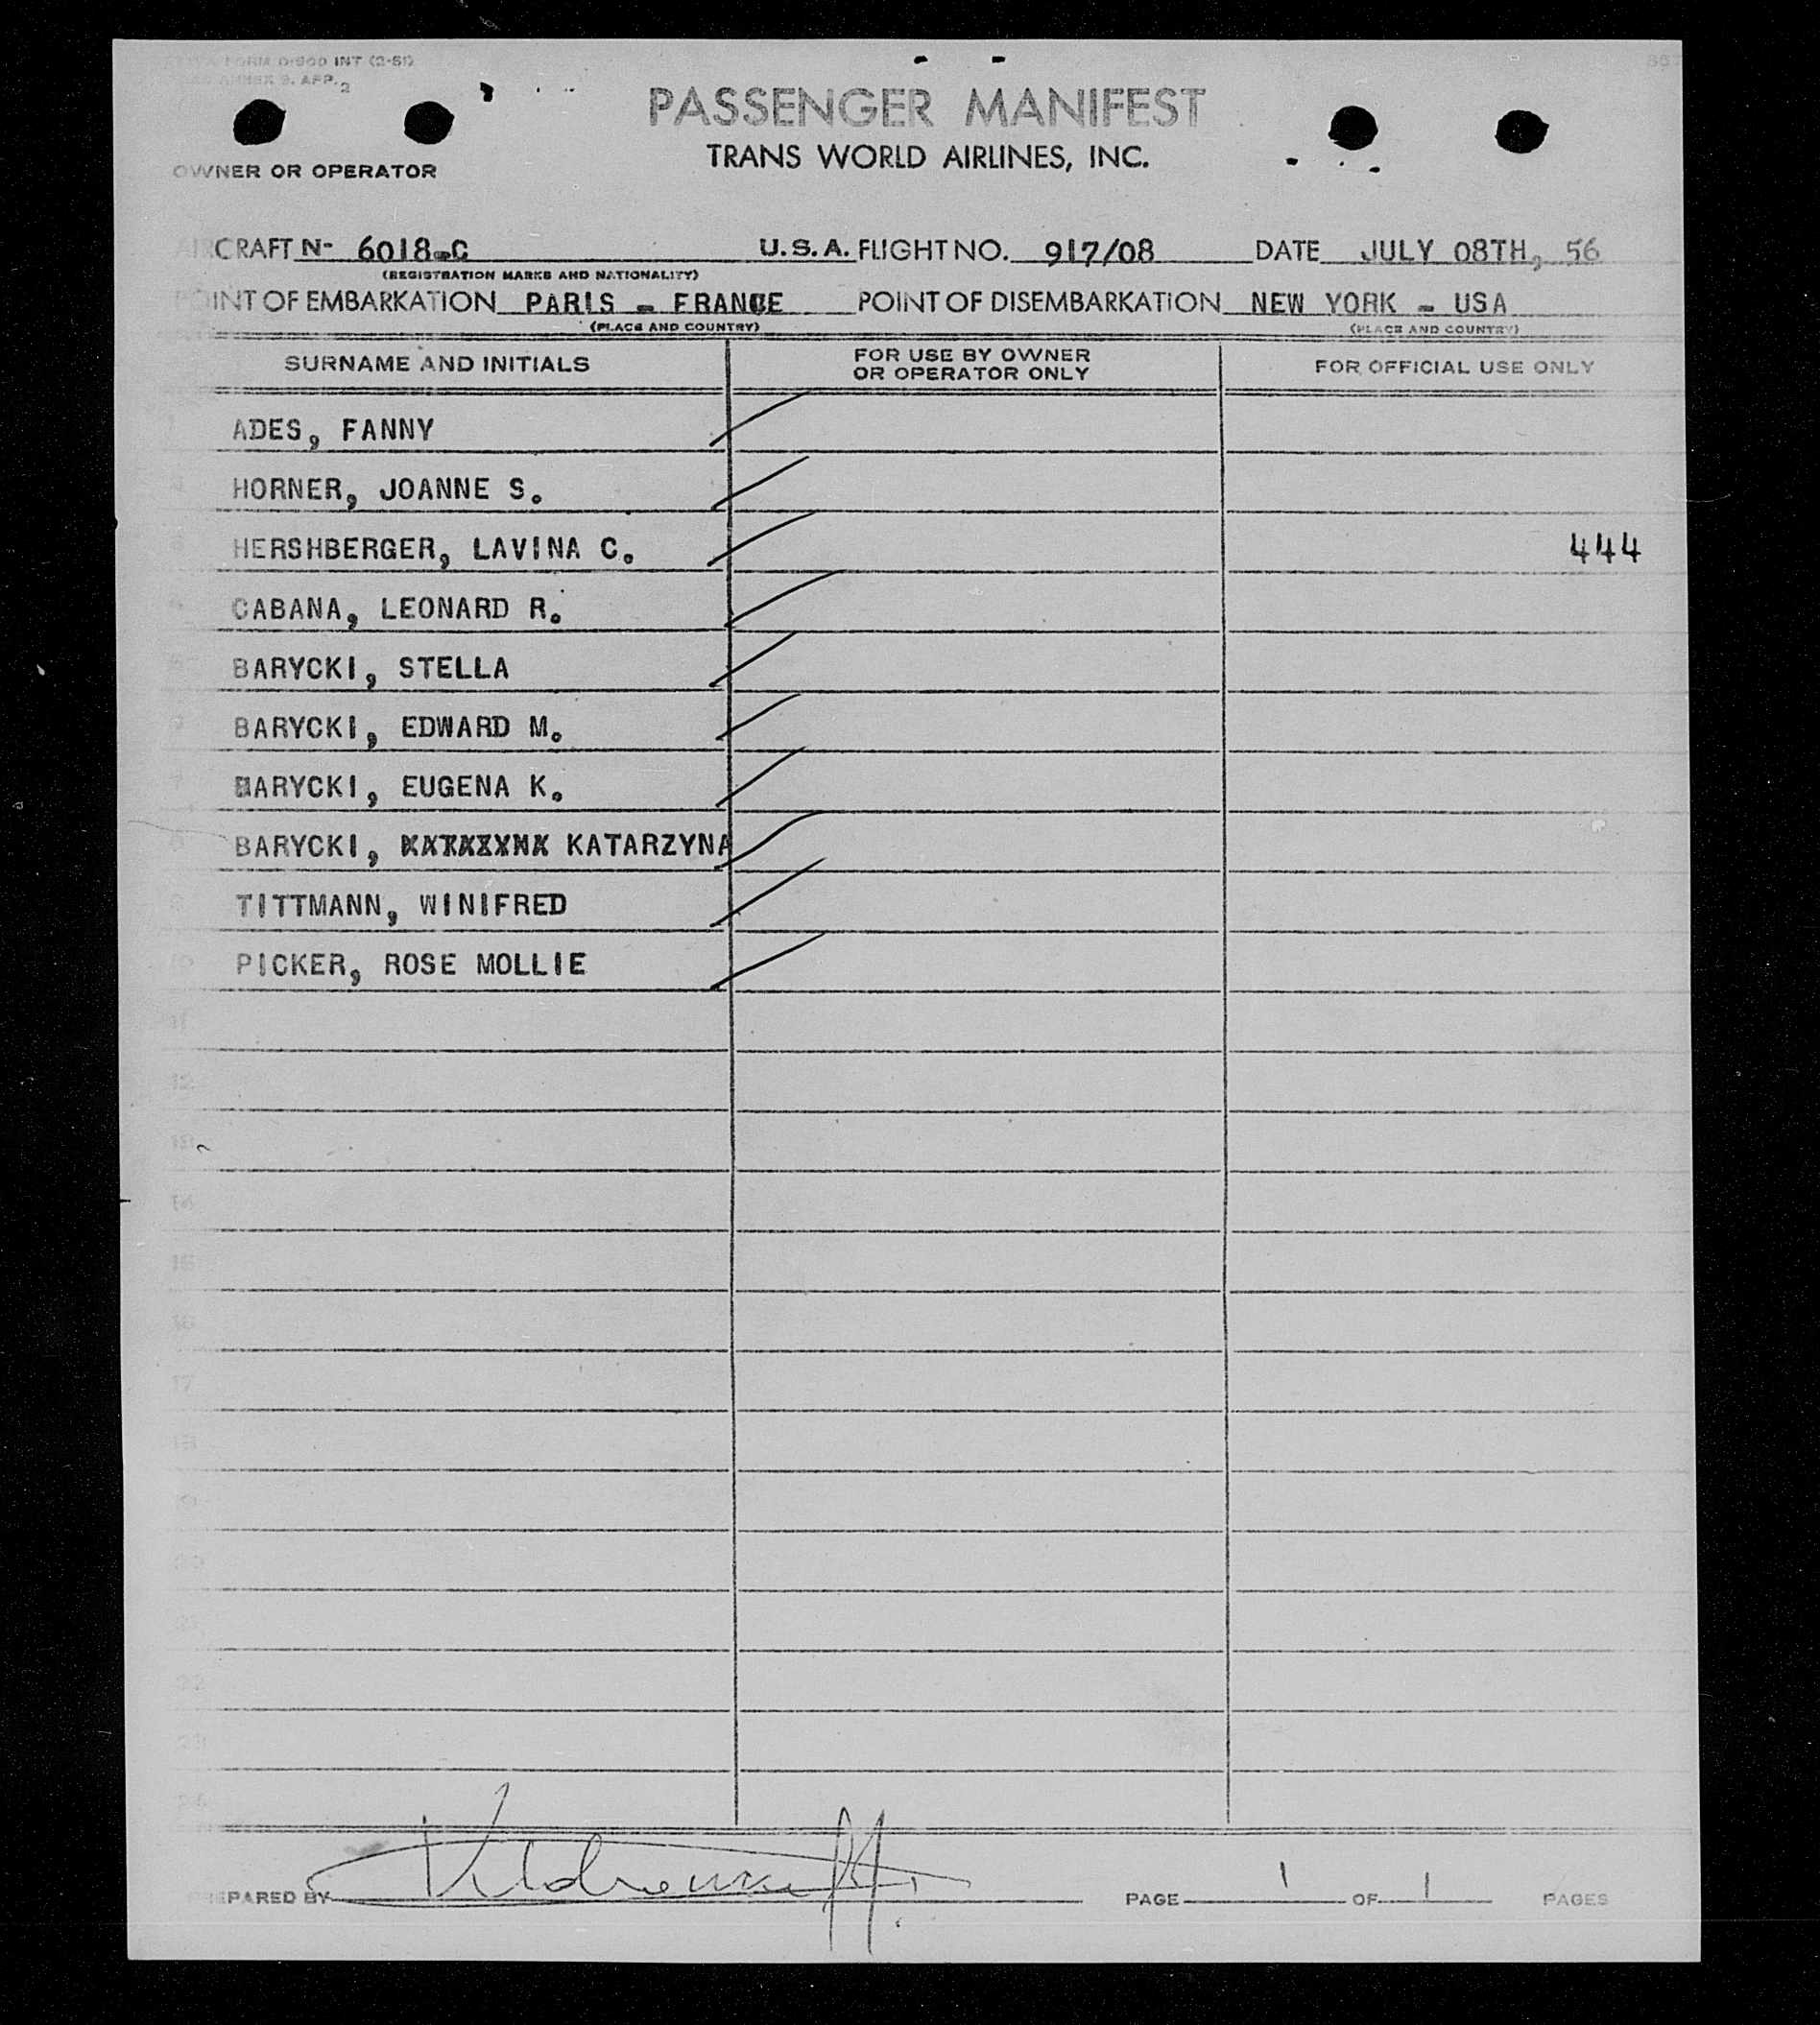 FORM D-900 INT (2-51)
ANNEX 9. APP. 2
PASSENGER MANIFEST
TRANS WORLD AIRLINES, INC.
OWNER OR OPERATOR
AIRCRAFT N- 6018-C U.S.A. FLIGHT NO. 917/08 DATE JULY 08TH, 56
(REGISTRATION MARKS AND NATIONALITY)
POINT OF EMBARKATION PARIS - FRANCE POINT OF DISEMBARKATION NEW YORK - USA
(PLACE AND COUNTRY) (PLACE AND COUNTRY)
SURNAME AND INITIALS FOR USE BY OWNER OR OPERATOR ONLY FOR OFFICIAL USE ONLY
ADES, FANNY
HORNER, JOANNE S.
HERSHBERGER, LAVINA C. 444
CABANA, LEONARD R.
BARYCKI, STELLA
BARYCKI, EDWARD M.
BARYCKI, EUGENA K.
BARYCKI, KATARZYNA
TITTMANN, WINIFRED
10 PICKER, ROSE MOLLIE
11
12
13
14
15
16
17
18
22
PREPARED BY PAGE 1 OF 1 PAGES